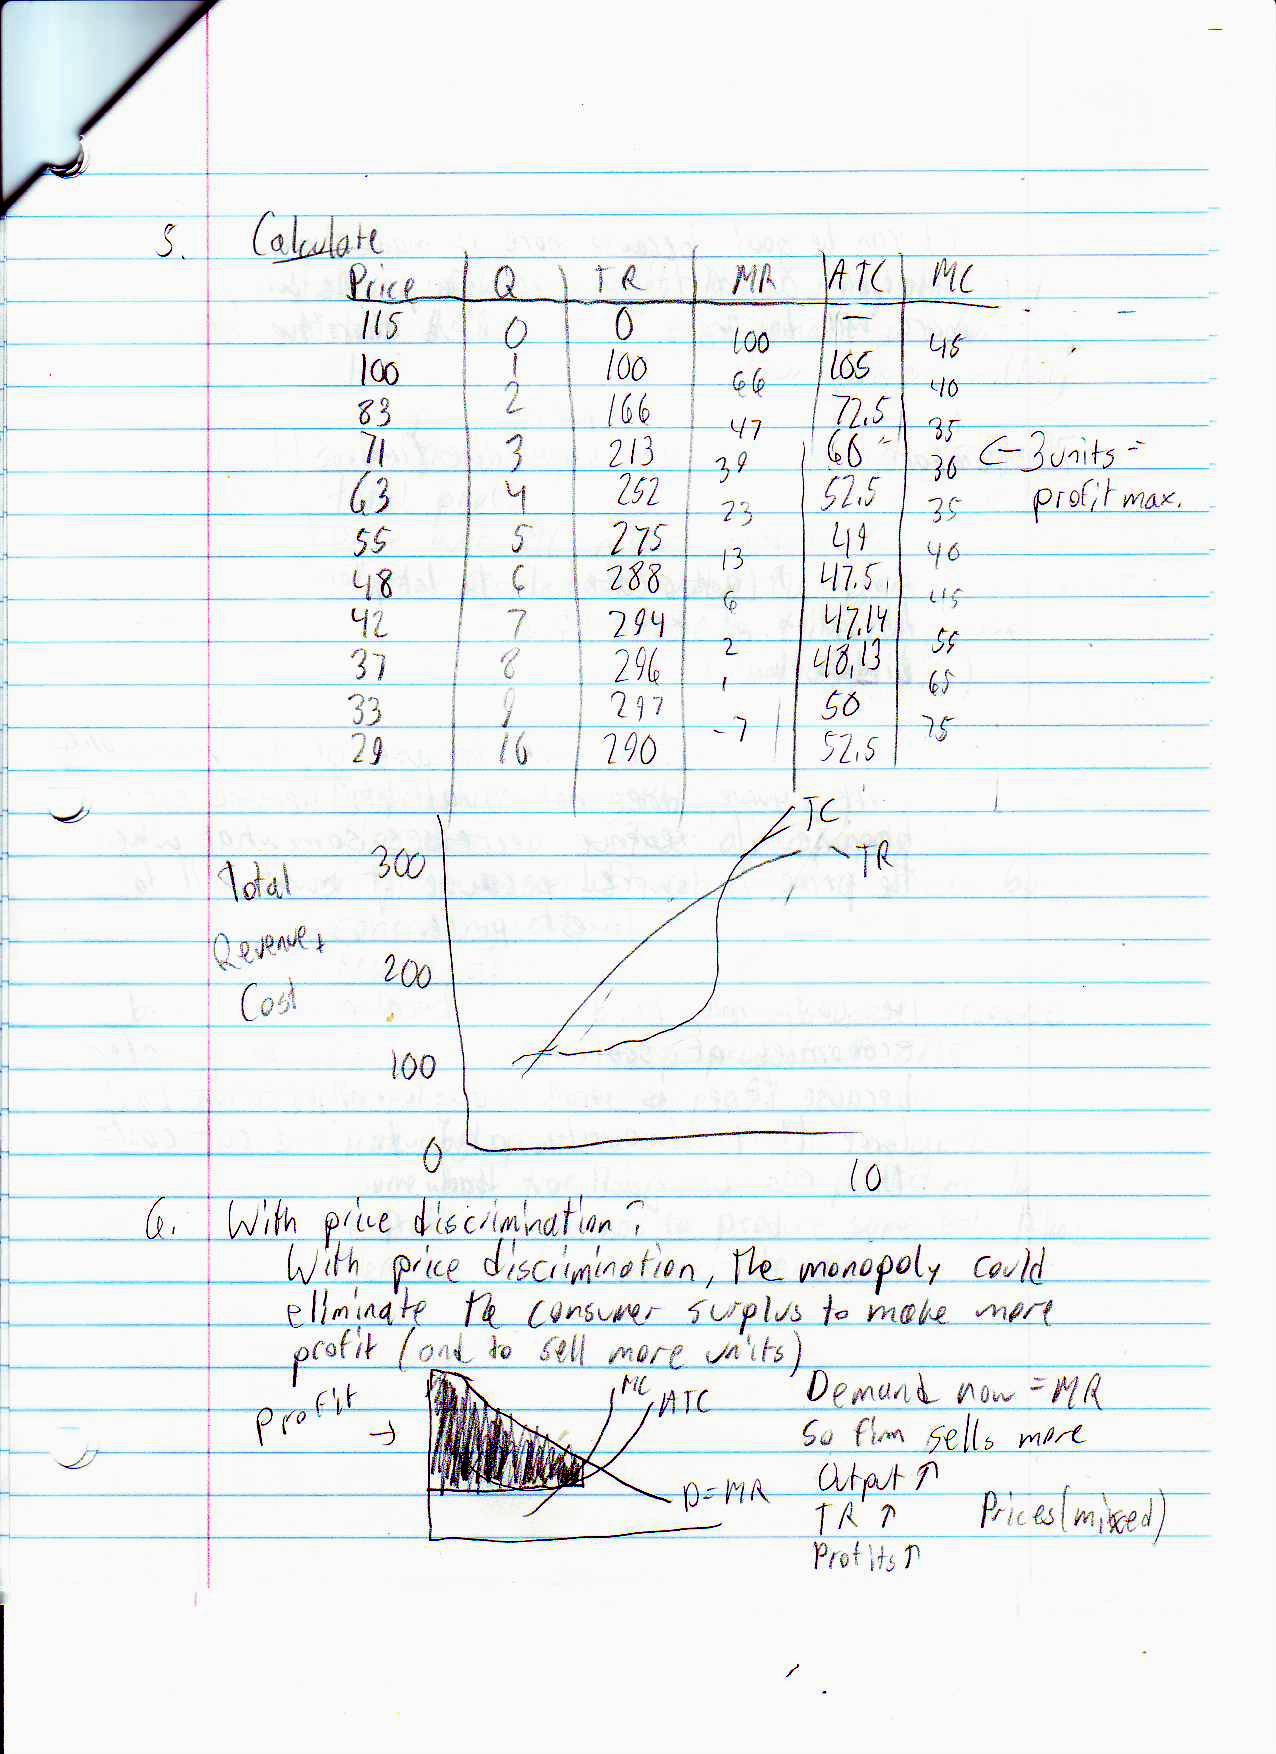 5. Calculate
Price Q TR MR ATC MC
115 0 0 —
100 45
100 1 100 105
66 40
83 2 166 72.5
47 35
71 3 213 60 <- 3 units =
39 30 profit max.
63 4 252 52.5
23 35
55 5 275 49
13 40
48 6 288 47.5
6 45
42 7 294 47.14
2 55
37 8 296 48.13
1 65
33 9 297 50
-7 75
29 10 290 52.5
TC
300 TR
Total
Revenue +
200
Cost
100
0
10
6. With price discrimination?
With price discrimination, the monopoly could
eliminate the consumer surplus to make more
profit (and to sell more units)
Profit → MC ATC D=MR
Demand now = MR
So firm sells more
Output ↑
TR ↑ Prices (mixed)
Profits ↑